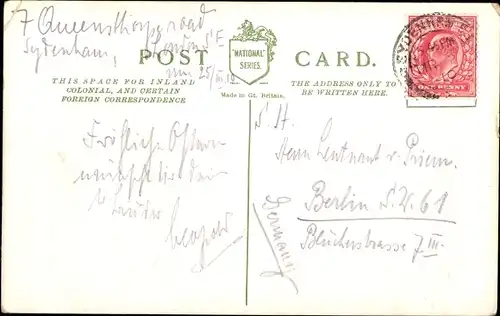 7 Queensthorpe road
Sydenham,
London S.E.
25/III 10
POST CARD.
"NATIONAL"
SERIES.
THIS SPACE FOR INLAND
COLONIAL, AND CERTAIN
FOREIGN CORRESPONDENCE
Made in Gt. Britain.
THE ADDRESS ONLY TO
BE WRITTEN HERE.
SYDENHAM
ONE PENNY
Fröhliche Ostern
wünscht Dir Dein
Leopold
S. H.
Herrn Leutnant v.
Berlin S.W. 61
Blücherstrasse 7 III.
Germany